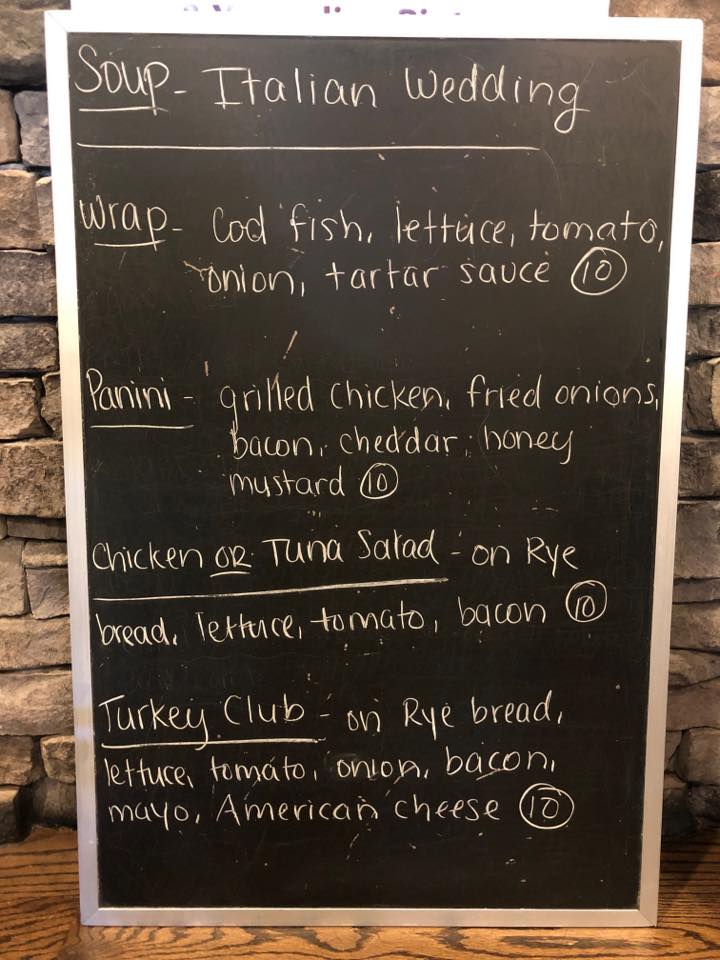 Soup - Italian Wedding
Wrap - Cod fish, lettuce, tomato,
onion, tartar sauce 10
Panini - grilled chicken, fried onions,
bacon, cheddar, honey
mustard 10
Chicken OR Tuna Salad - on Rye
bread, lettuce, tomato, bacon 10
Turkey Club - on Rye bread,
lettuce, tomato, onion, bacon,
mayo, American cheese 10